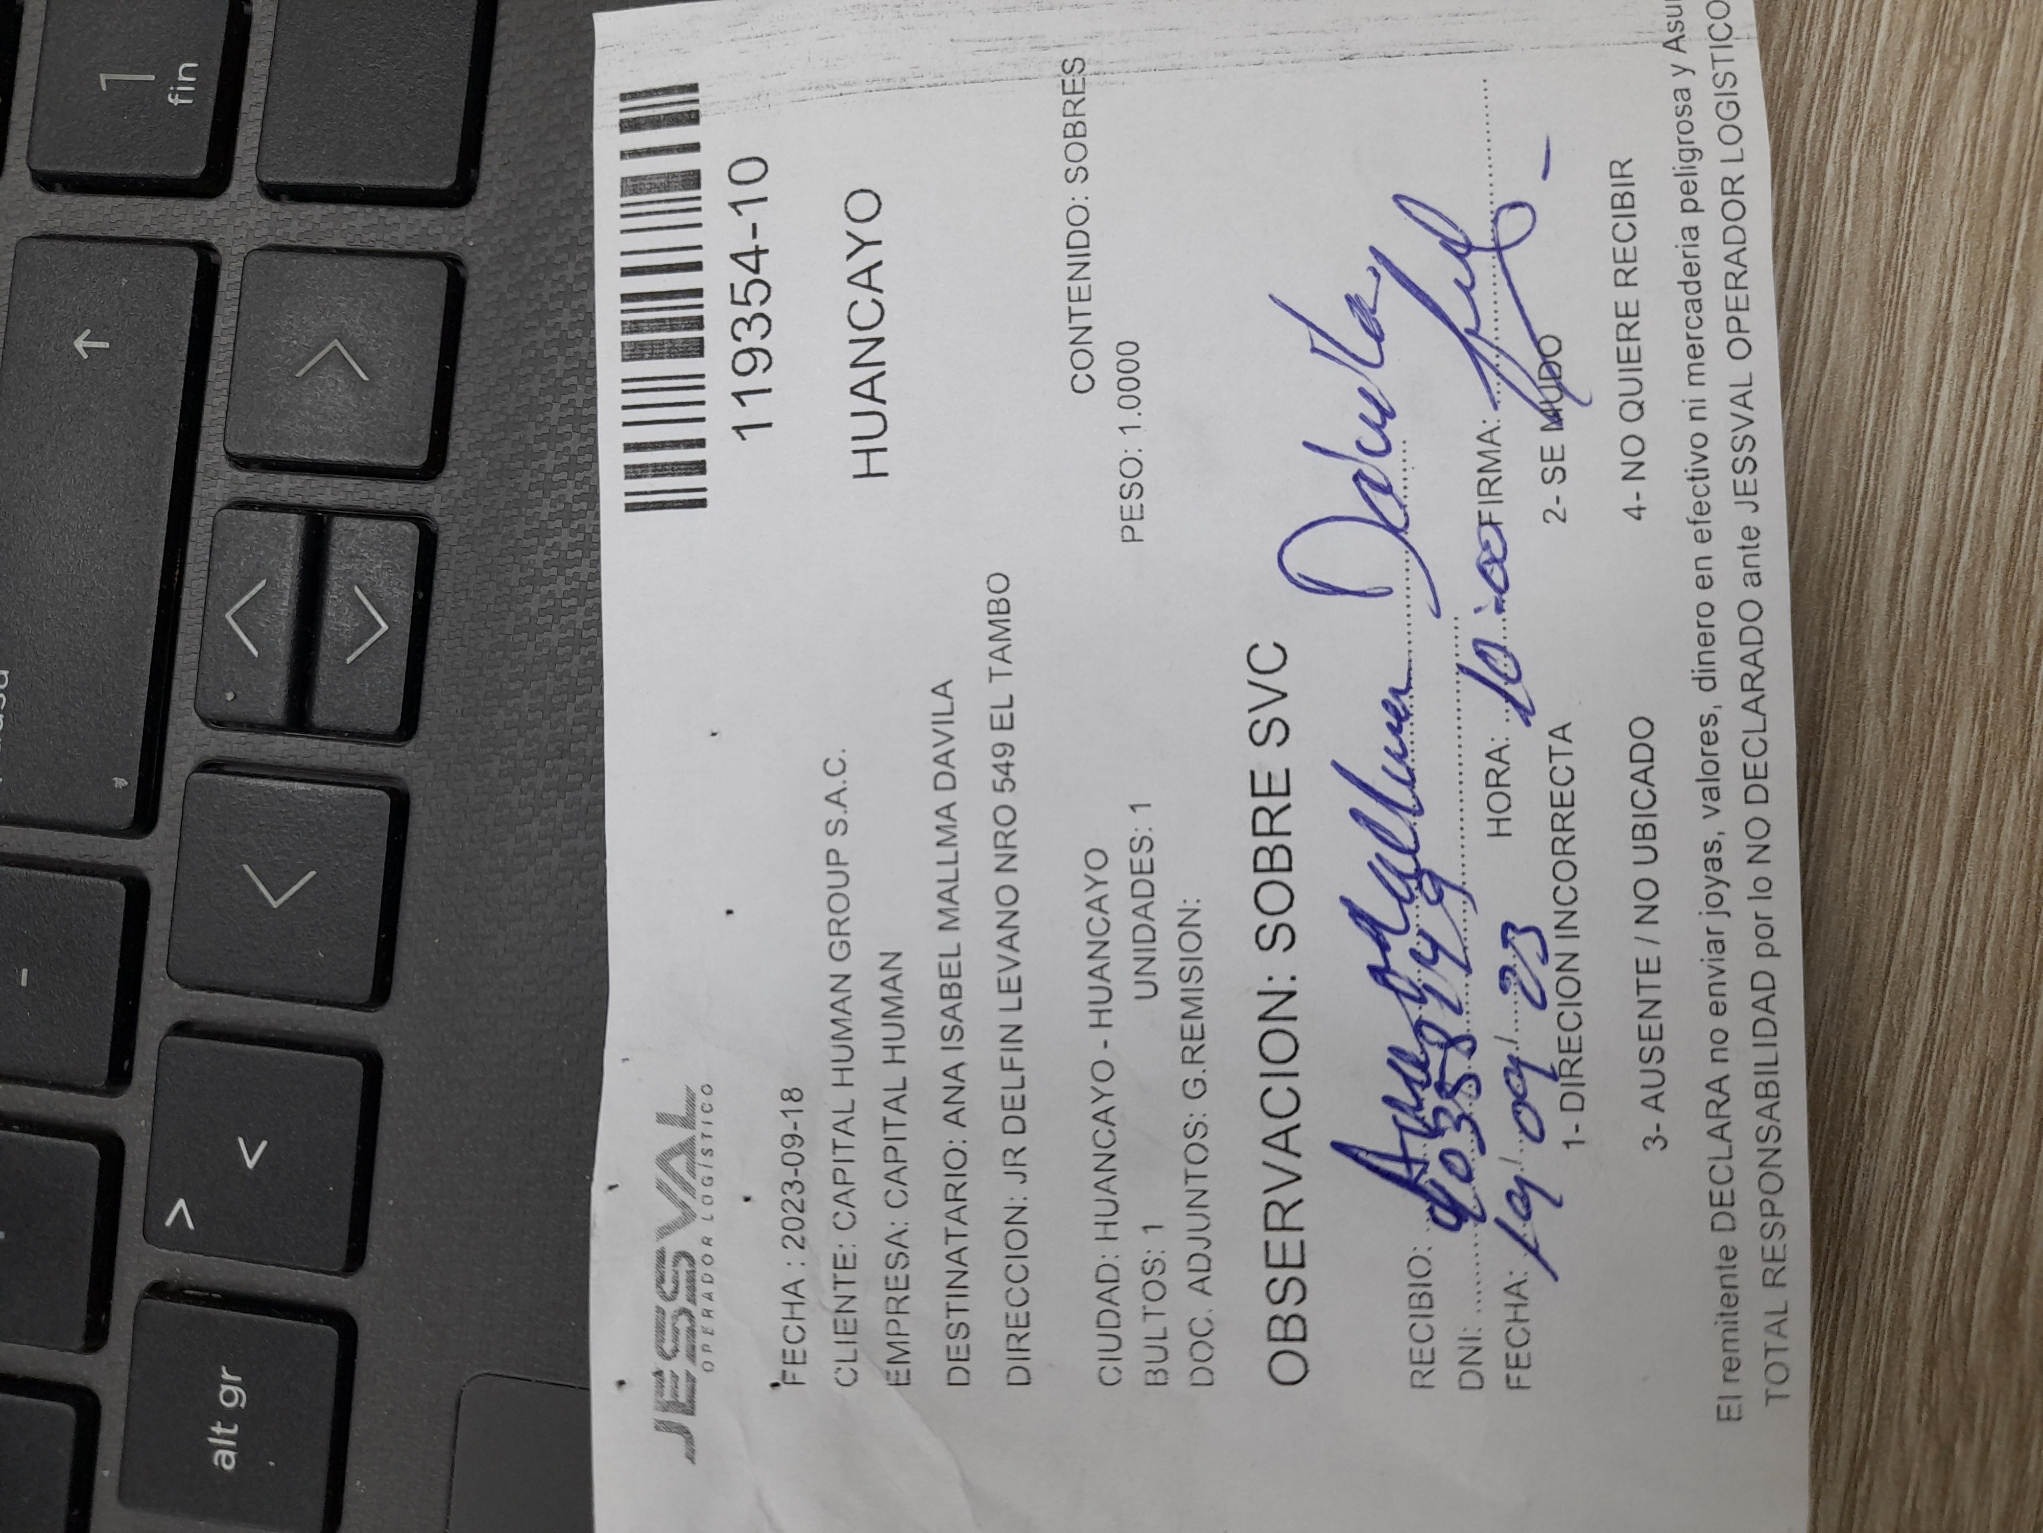 pausa
-
↑
1
fin
alt gr
>
<
JESSVAL
OPERADOR LOGÍSTICO
119354-10
FECHA : 2023-09-18
CLIENTE: CAPITAL HUMAN GROUP S.A.C.
HUANCAYO
EMPRESA: CAPITAL HUMAN
DESTINATARIO: ANA ISABEL MALLMA DAVILA
DIRECCION: JR DELFIN LEVANO NRO 549 EL TAMBO
CONTENIDO: SOBRES
CIUDAD: HUANCAYO - HUANCAYO
BULTOS: 1 UNIDADES: 1 PESO: 1.0000
DOC. ADJUNTOS: G.REMISION:
OBSERVACION: SOBRE SVC
RECIBIO: Ana Mallma Davila
DNI:
FECHA: 19/09/23 HORA: 10:00 FIRMA:
1- DIRECION INCORRECTA 2- SE MUDO
3- AUSENTE / NO UBICADO 4- NO QUIERE RECIBIR
El remitente DECLARA no enviar joyas, valores, dinero en efectivo ni mercaderia peligrosa y Asu
TOTAL RESPONSABILIDAD por lo NO DECLARADO ante JESSVAL OPERADOR LOGISTICO